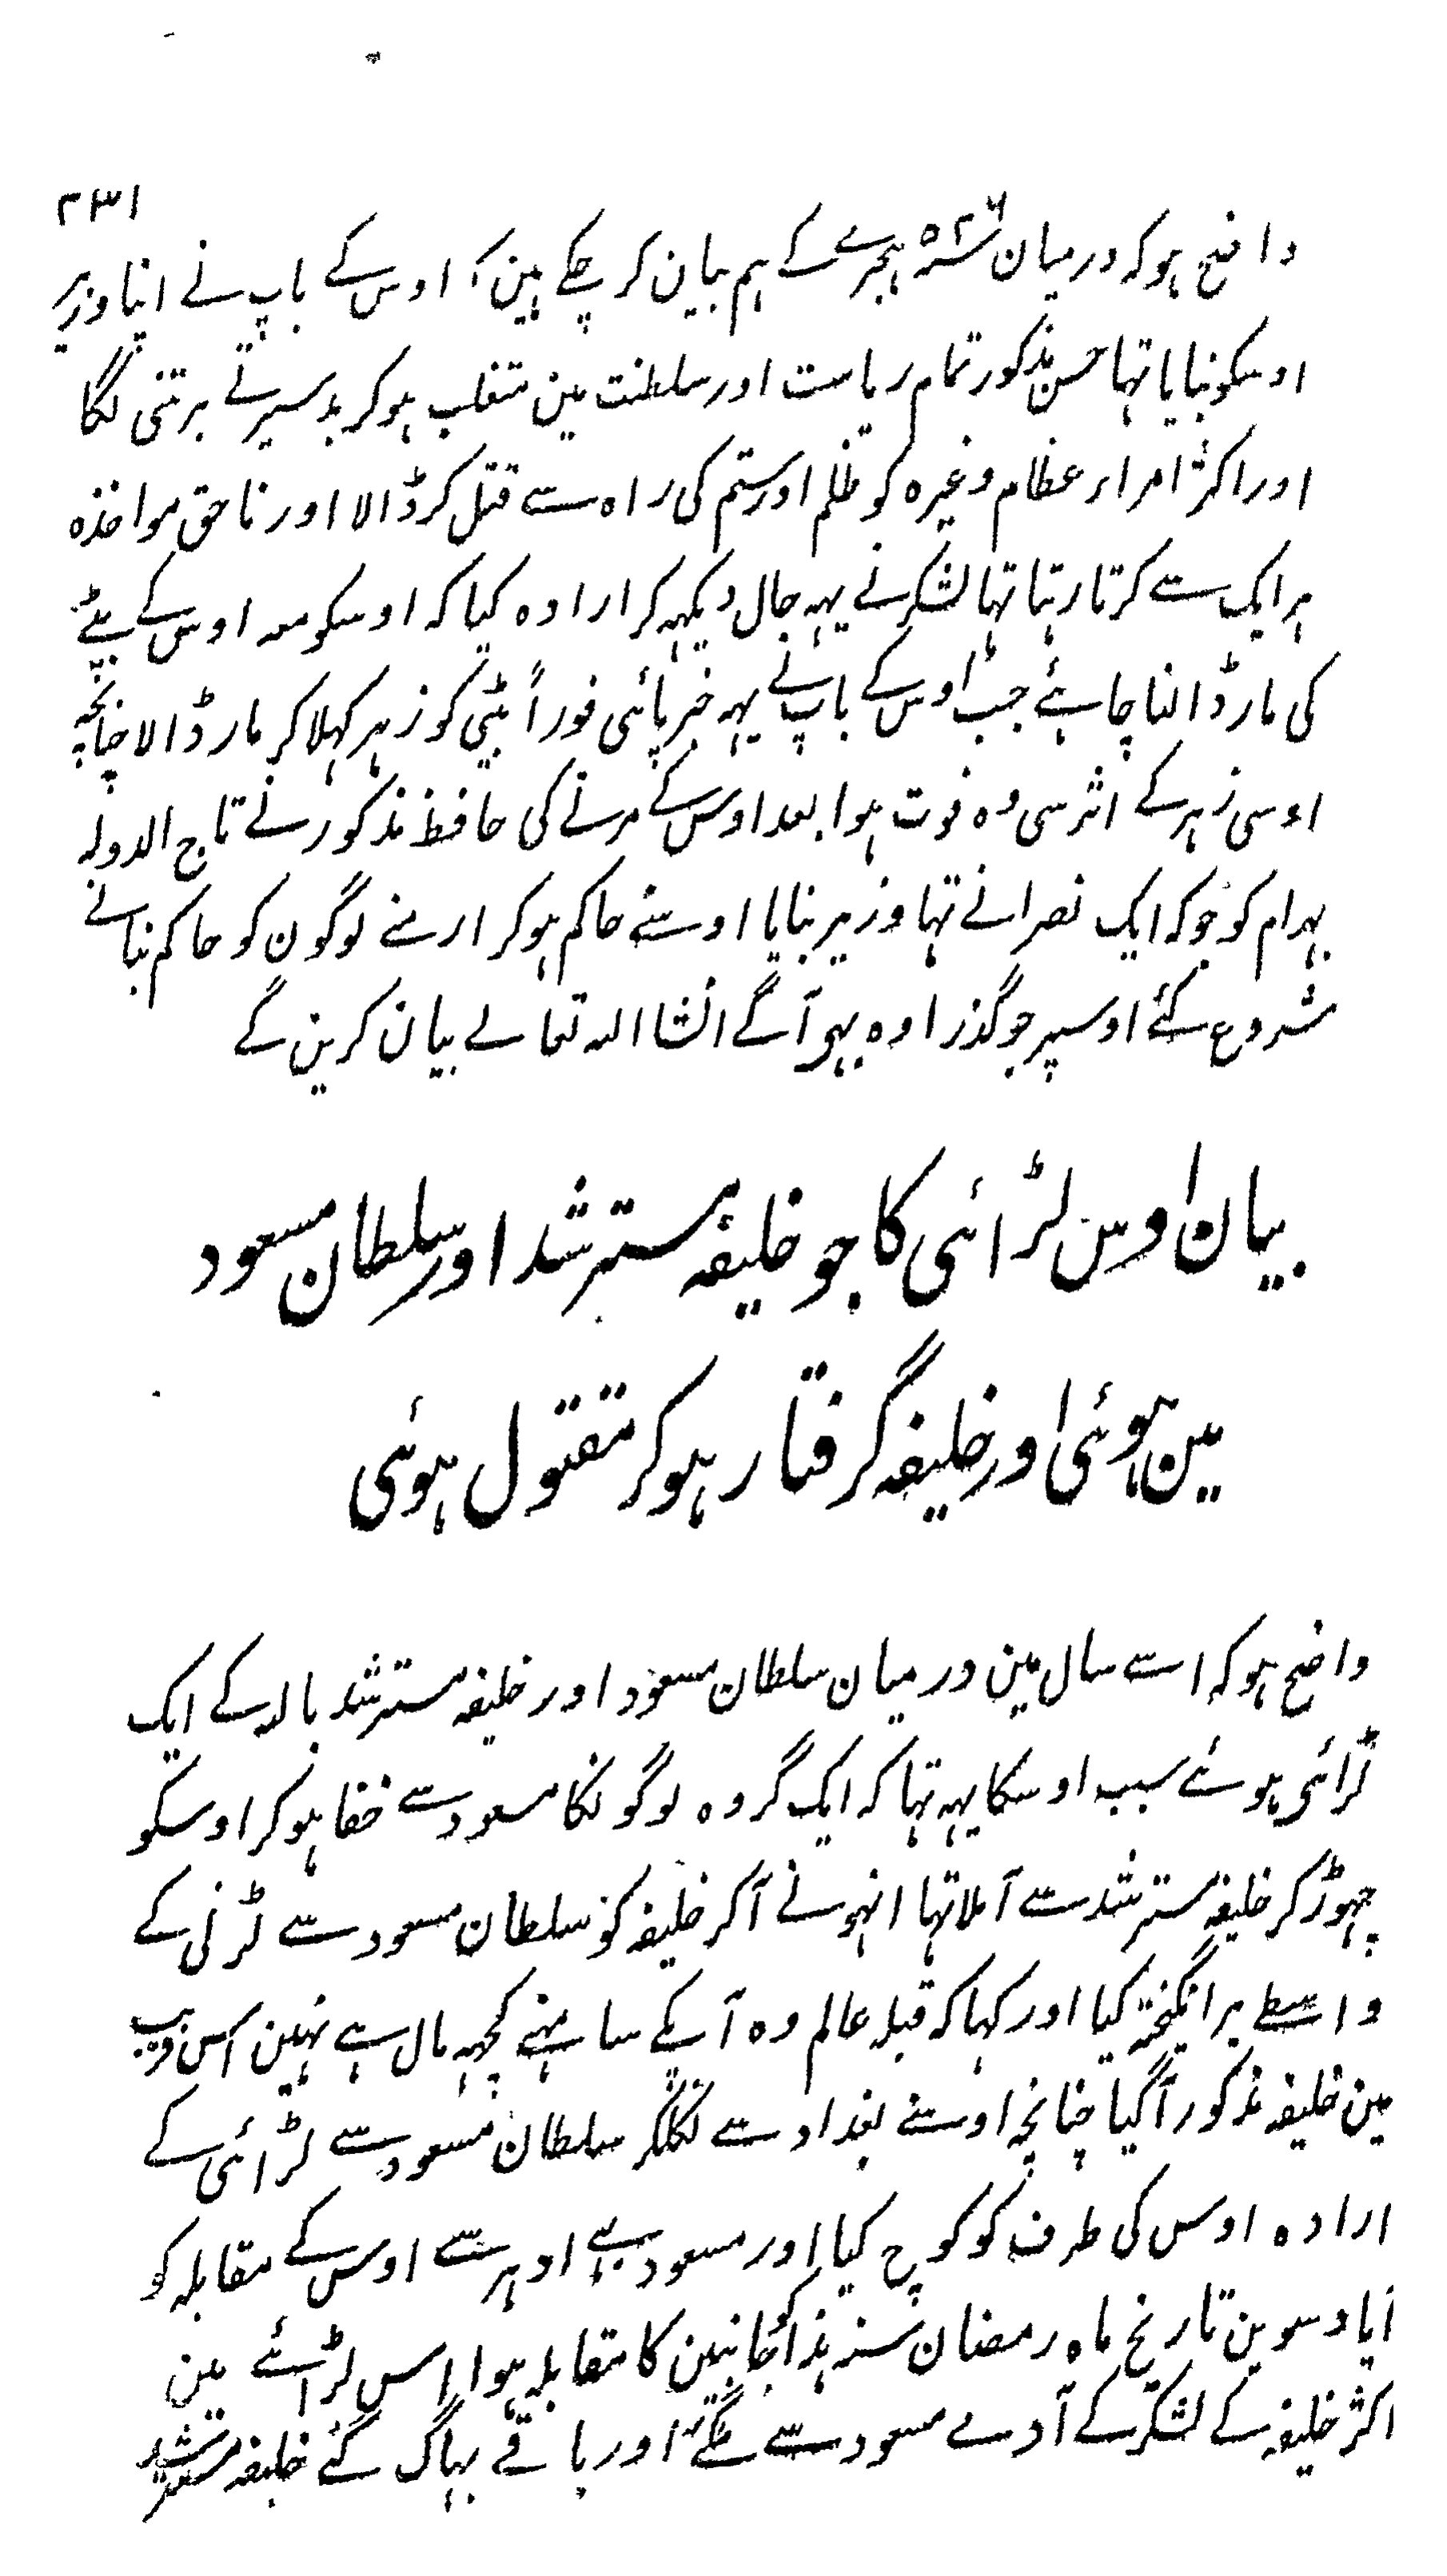 ۲۳۱
واضح ہو کہ درمیان ۵۲۶ ہجرے کے ہم بیان کر چکے ہین کہ اوس کے باپ نے اپنا وزیر
اوسکو بنایا تہا حسن مذکور تمام ریاست اور سلطنت مین متغلب ہو کر بد سیرتے برتنی لگا
اور اکثر امراء عظام وغیرہ کو ظلم اور ستم کی راہ سے قتل کر ڈالا اور ناحق مواخذہ
ہر ایک سے کرتا رہتا تہا لشکر نے یہہ حال دیکہہ کر ارادہ کیا کہ اوسکو معہ اوس کے بیٹے
کی مار ڈالنا چاہئے جب اوس کے باپ نے یہہ خبر پائی فوراً بیٹی کو زہر کہلا کر مار ڈالا چنانچہ
اوسی زہر کے اثر سی وہ فوت ہوا بعد اوس کے مرنے کی حافظ مذکور نے تاج الدولہ
بہرام کو جو کہ ایک نصرانے تہا وزیر بنایا اوسنے حاکم ہو کر ارمنے لوگون کو حاکم بنانے
شروع کئے اوسپر جو گذرا وہ بہی آگے انشا اللہ تعالے بیان کرین گے
بیان اوس لڑائی کا جو خلیفہ مسترشد اور سلطان مسعود
مین ہوئی اور خلیفہ گرفتار ہو کر مقتول ہوئی
واضح ہو کہ اسے سال مین درمیان سلطان مسعود اور خلیفہ مسترشد باللہ کے ایک
لڑائی ہوئے سبب اوسکا یہہ تہا کہ ایک گروہ لوگونکا مسعود سے خفا ہو کر اوسکو
چہوڑ کر خلیفہ مسترشد سے آ ملا تہا انہو نے آ کر خلیفہ کو سلطان مسعود سے لڑنی کے
واسطے برانگیختہ کیا اور کہا کہ قبلہ عالم وہ آپکے سامہنے کچہہ مال ہے نہین اس فریب
مین خلیفہ مذکور آگیا چنانچہ اوسنے بغداد سے نکلکر سلطان مسعود سے لڑائی کے
ارادہ اوس کی طرف کو کوچ کیا اور مسعود بہے اوہر سے اوس کے مقابلہ کو
آیا دسوین تاریخ ماہ رمضان سنہ ہذا کو جانبین کا مقابلہ ہوا اس لڑائے مین
اکثر خلیفہ کے لشکر کے آدمے مسعود سے ملگئے اور باقے بہاگ گئے خلیفہ مسترشد